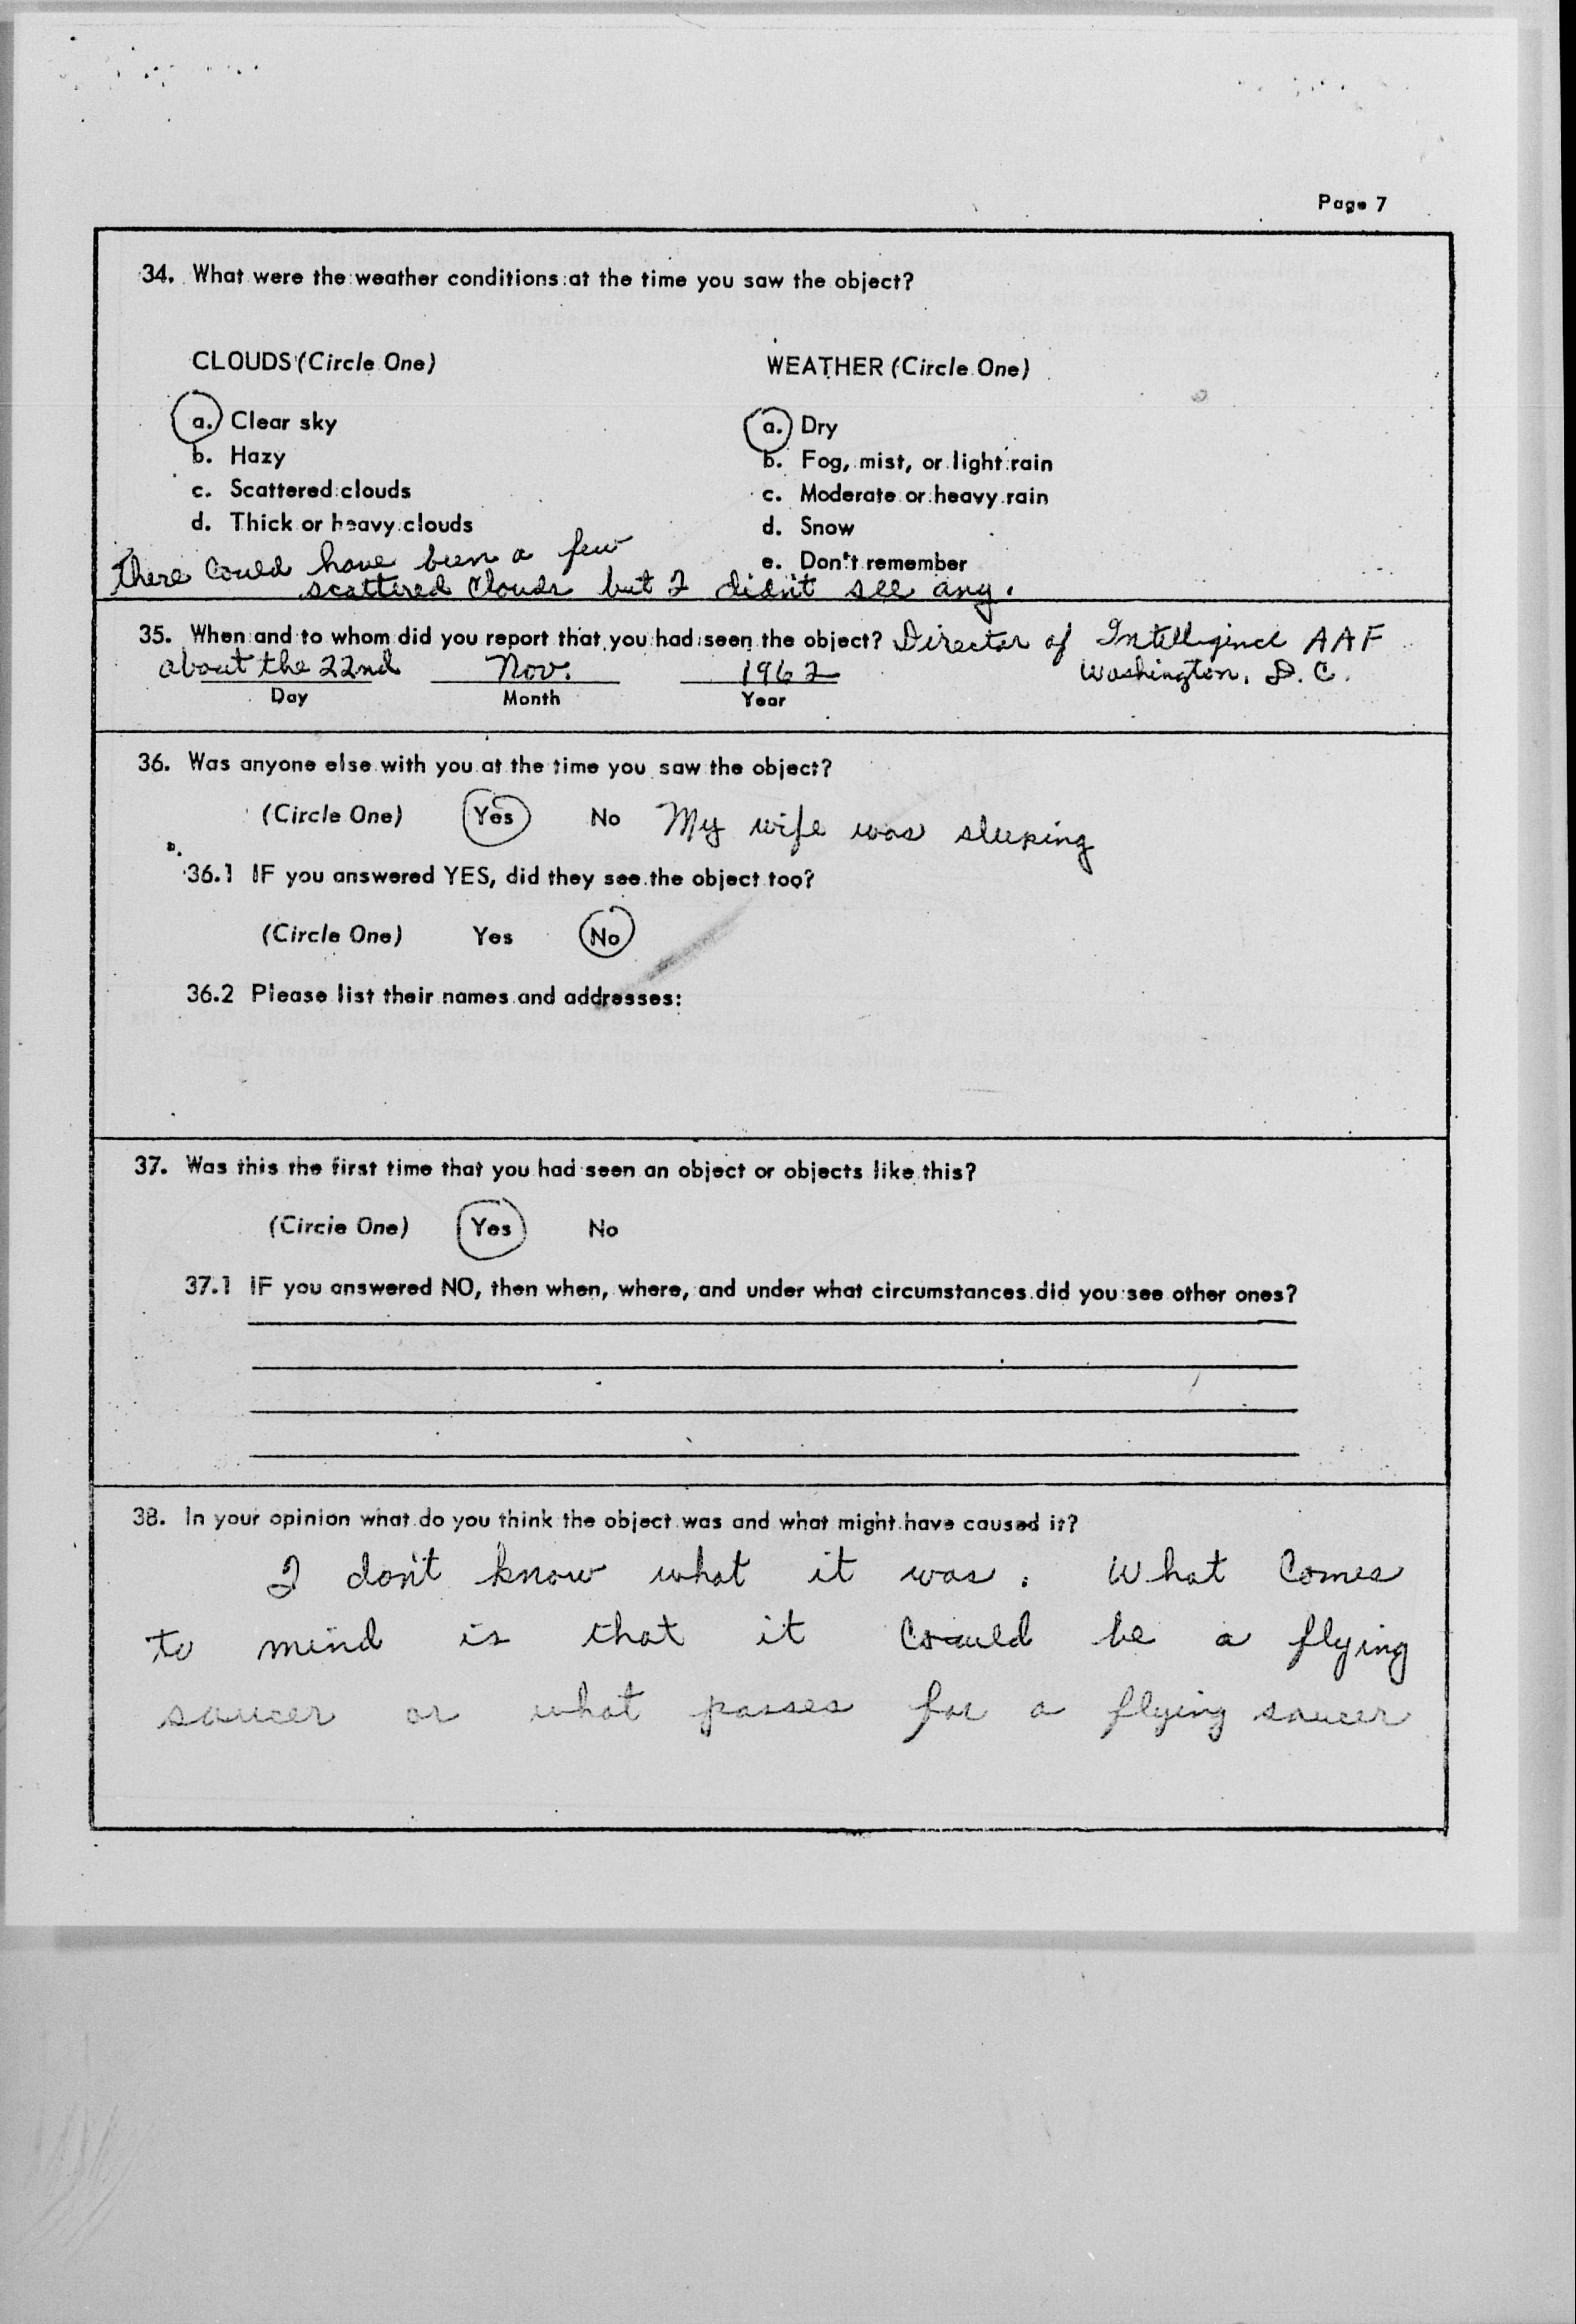 Page 7
34. What were the weather conditions at the time you saw the object?
CLOUDS (Circle One)
a. Clear sky
b. Hazy
c. Scattered clouds
d. Thick or heavy clouds
WEATHER (Circle One)
a. Dry
b. Fog, mist, or light rain
c. Moderate or heavy rain
d. Snow
e. Don't remember
There could have been a few
scattered clouds but I didn't see any.
35. When and to whom did you report that you had seen the object? Director of Intelligence AAF
about the 22nd Nov. 1962 Washington, D.C.
Day Month Year
36. Was anyone else with you at the time you saw the object?
(Circle One) Yes No My wife was sleeping
36.1 IF you answered YES, did they see the object too?
(Circle One) Yes No
36.2 Please list their names and addresses:
37. Was this the first time that you had seen an object or objects like this?
(Circle One) Yes No
37.1 IF you answered NO, then when, where, and under what circumstances did you see other ones?
38. In your opinion what do you think the object was and what might have caused it?
I don't know what it was. What comes
to mind is that it could be a flying
saucer or what passes for a flying saucer